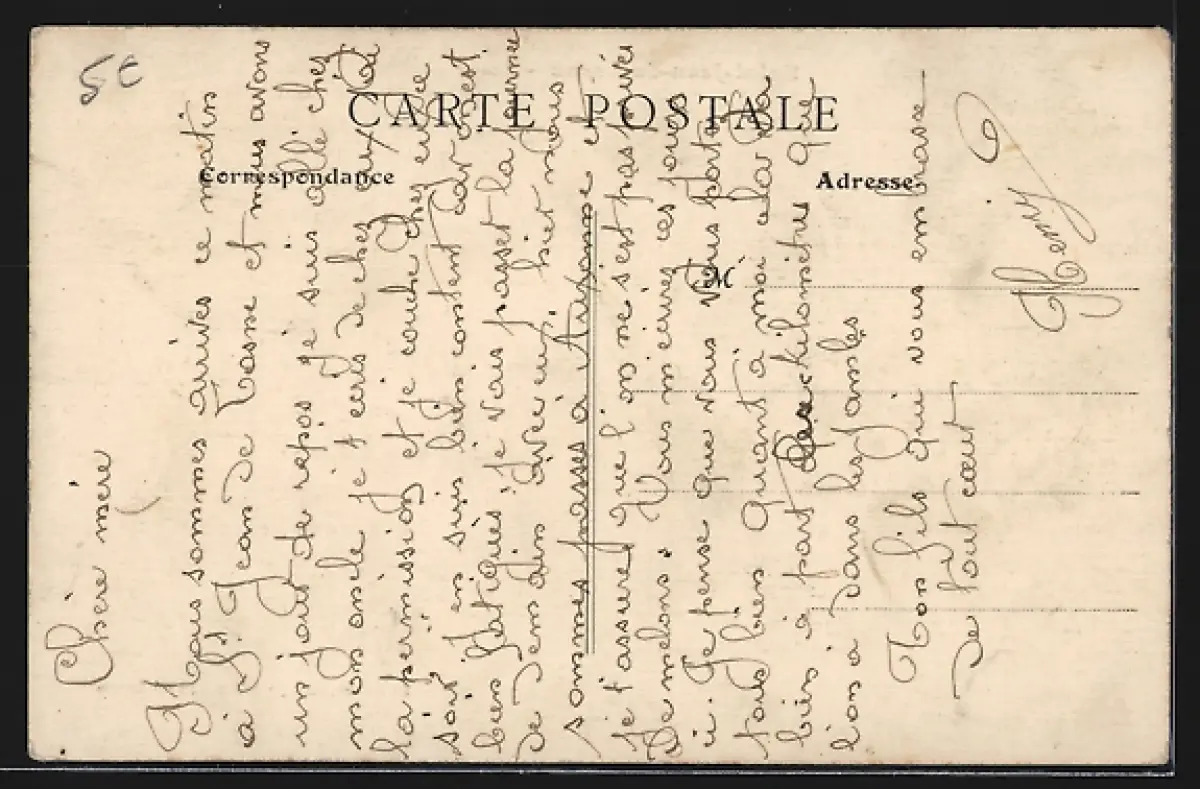 5 €
CARTE POSTALE
Correspondance
Adresse
M
Chère mère
Nous sommes arrivés ce matin
à St Jean de Losne et nous avons
un jour de repos je suis allé chez
mon oncle je t'ecris de chez eux j'ai
la permission et je couche chez eux ce
soir j'en suis bien content car on est
bien fatigués, je vais passer la journée
de demain avec eux, hier nous
sommes passés à Auxonne et
je t'assure que l'on ne s'est pas privés
de melons. Vous m'ecrirez ces jours
ci. Je pense que vous vous portez
tous bien quant à moi cela va
bien à part les kilomètres que
l'on a dans les jambes
Ton fils qui vous embrasse
de tout cœur
Henry